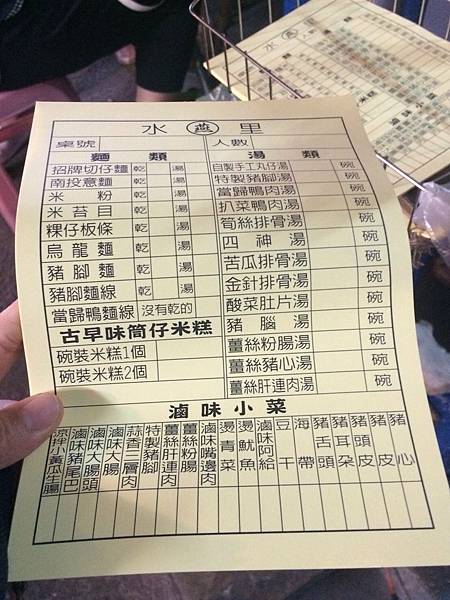 水 燕 里
桌號
人數
麵類
招牌切仔麵 乾 湯
南投意麵 乾 湯
米粉 乾 湯
米苔目 乾 湯
粿仔板條 乾 湯
烏龍麵 乾 湯
豬腳麵 乾 湯
豬腳麵線 乾 湯
當歸鴨麵線 沒有乾的
古早味筒仔米糕
碗裝米糕1個
碗裝米糕2個
湯類
自製手工丸仔湯 碗
特製豬腳湯 碗
當歸鴨肉湯 碗
扒菜鴨肉湯 碗
筍絲排骨湯 碗
四神湯 碗
苦瓜排骨湯 碗
金針排骨湯 碗
酸菜肚片湯 碗
豬腦湯 碗
薑絲粉腸湯 碗
薑絲豬心湯 碗
薑絲肝連肉湯 碗
滷味小菜
涼拌小黃瓜生腸
滷味豬尾巴
滷味大腸頭
滷味大腸
蒜香三層肉
特製豬腳
薑絲肝連肉
薑絲粉腸
滷味嘴邊肉
燙青菜
燙魷魚
滷味阿給
豆干
海帶
豬舌頭
豬耳朵
豬頭皮
豬皮
豬心